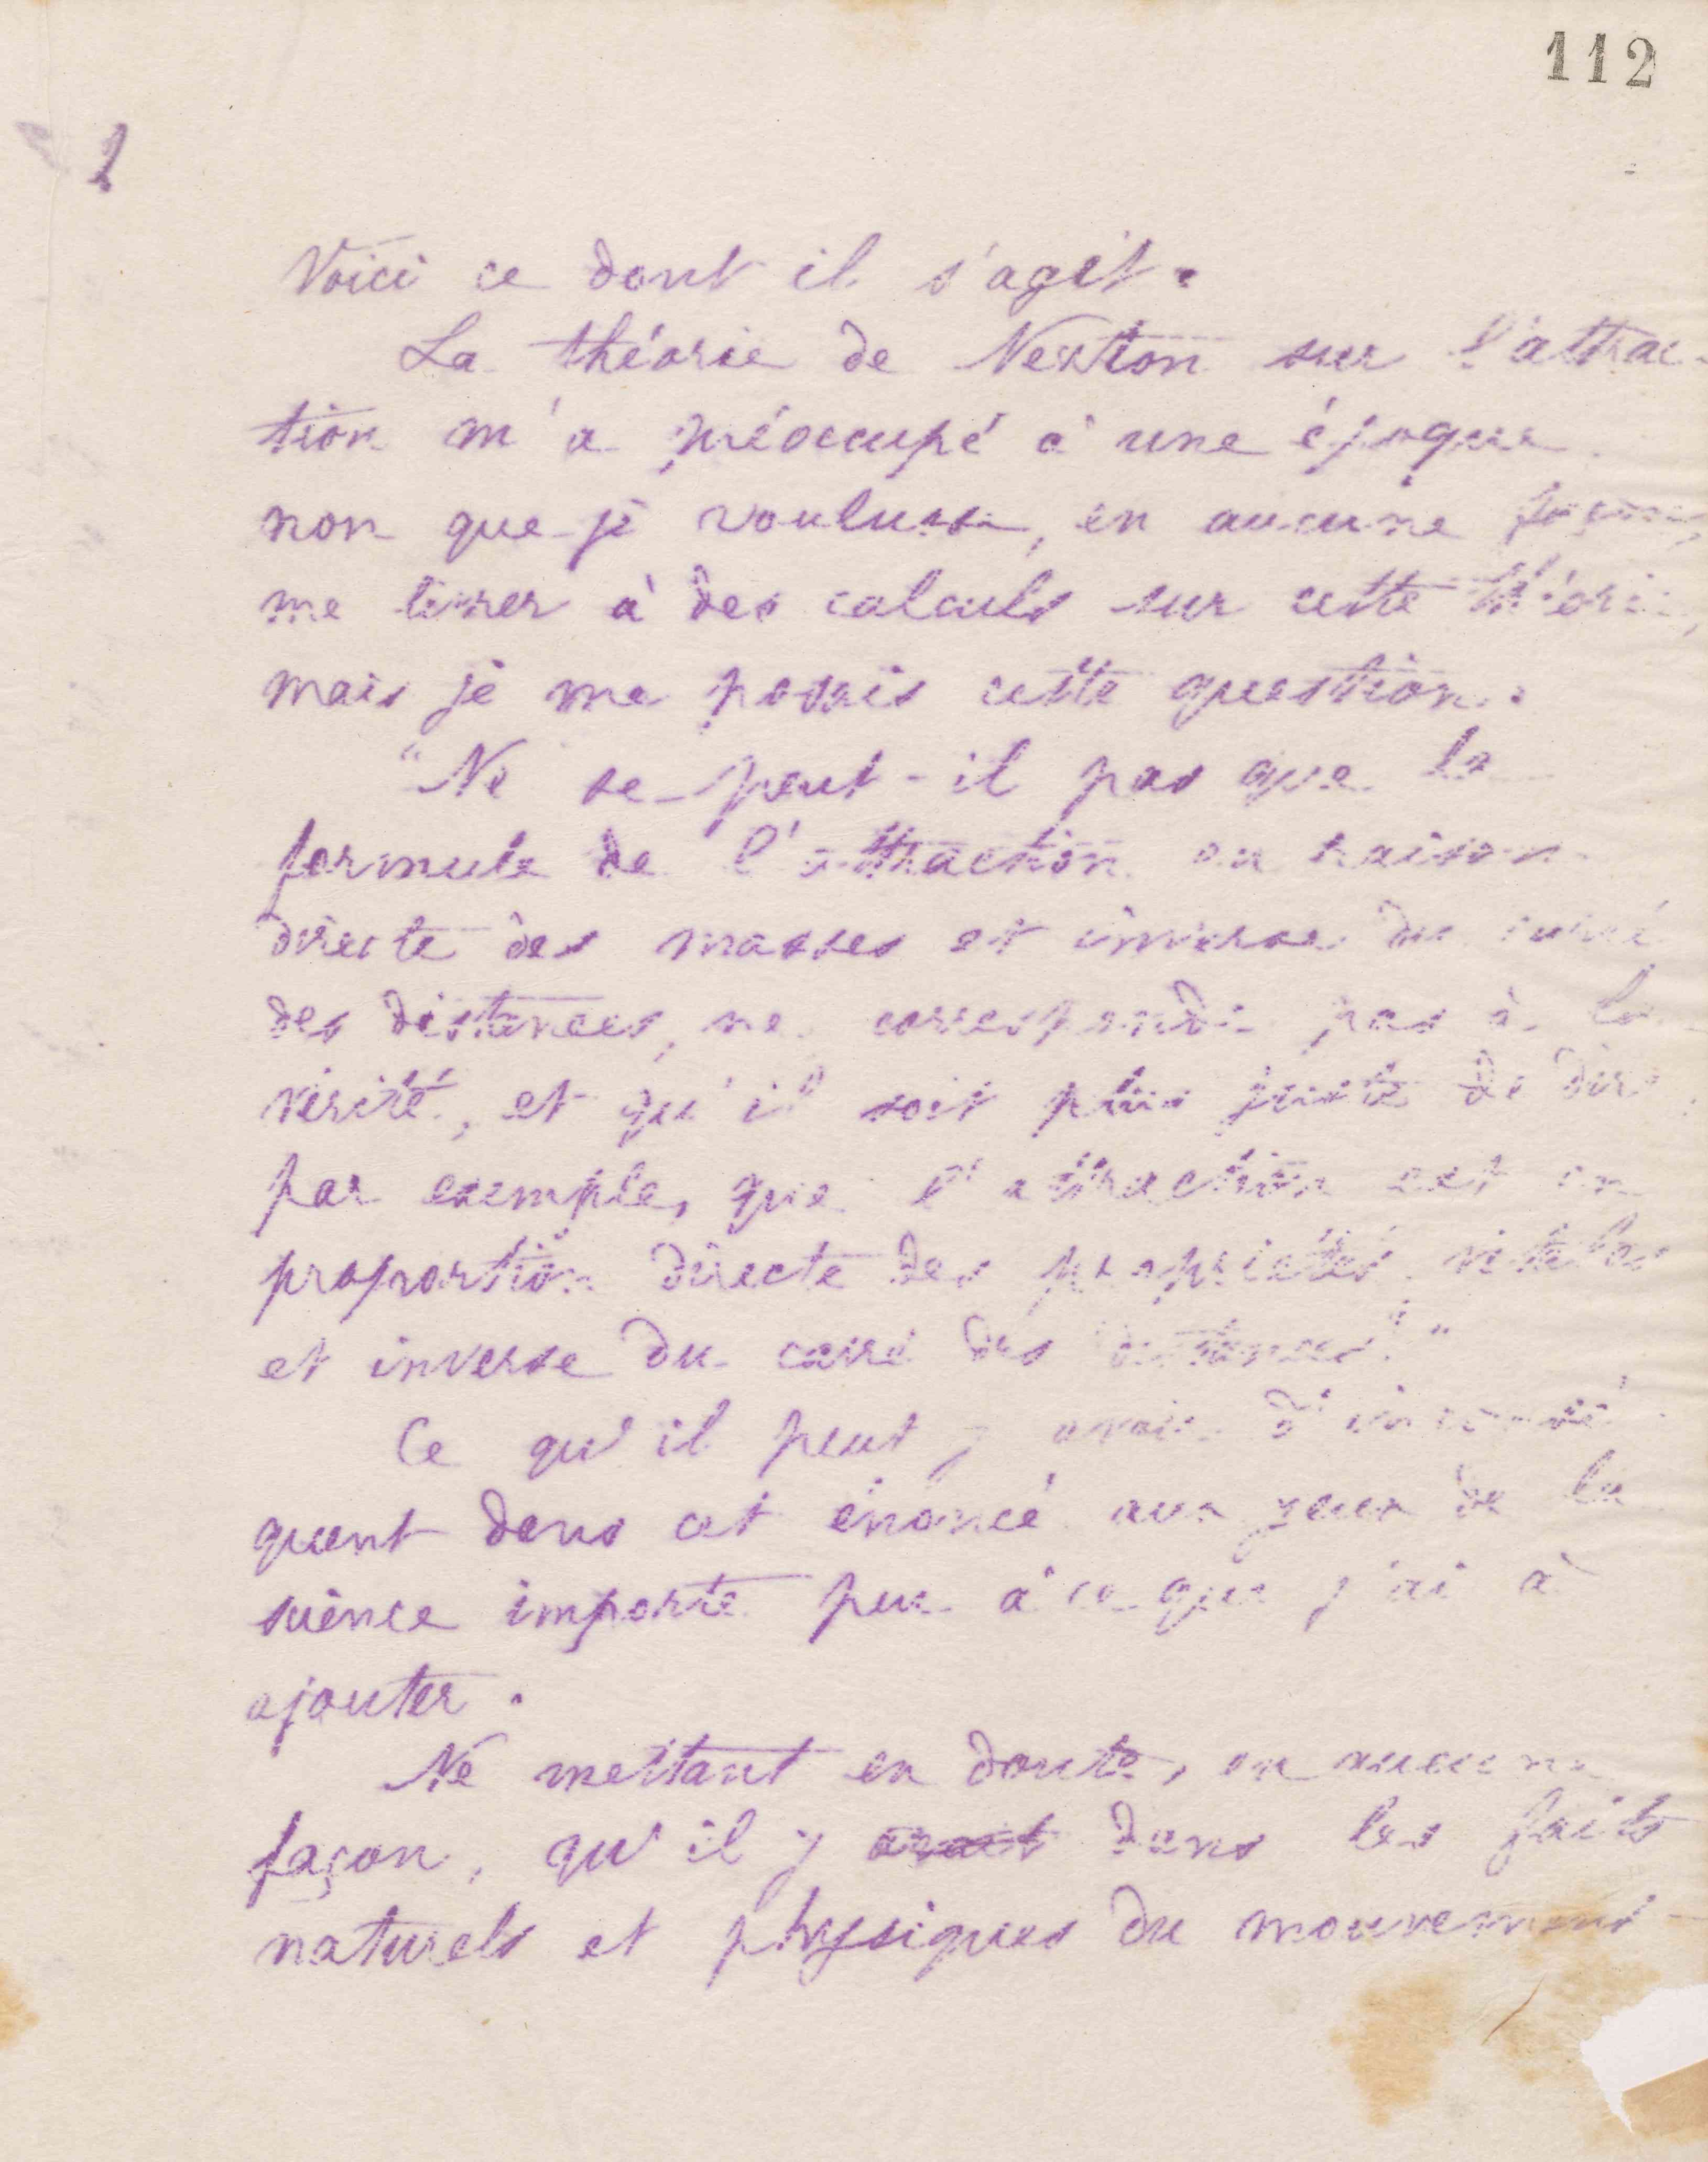 112
2
Voici ce dont il s'agit.
La théorie de Newton sur l'attrac-
tion m'a préoccupé à une époque
non que je voulusse, en aucune façon,
me livrer à des calculs sur cette théorie,
mais je me posais cette question.
"Ne se peut-il pas que la
formule de l'attraction en raison
directe des masses et inverse du carré
des distances, ne corresponde pas à la
vérité, et qu'il soit plus juste de dire,
par exemple, que l'attraction est en
proportion directe des propriétés vitales
et inverse du carré des distances."
Ce qu'il peut y avoir d'incomplé
quent dans cet énoncé aux yeux de la
science importe peu à ce que j'ai à
ajouter.
Ne mettant en doute, en aucune
façon, qu'il y avait dans les faits
naturels et physiques du mouvement